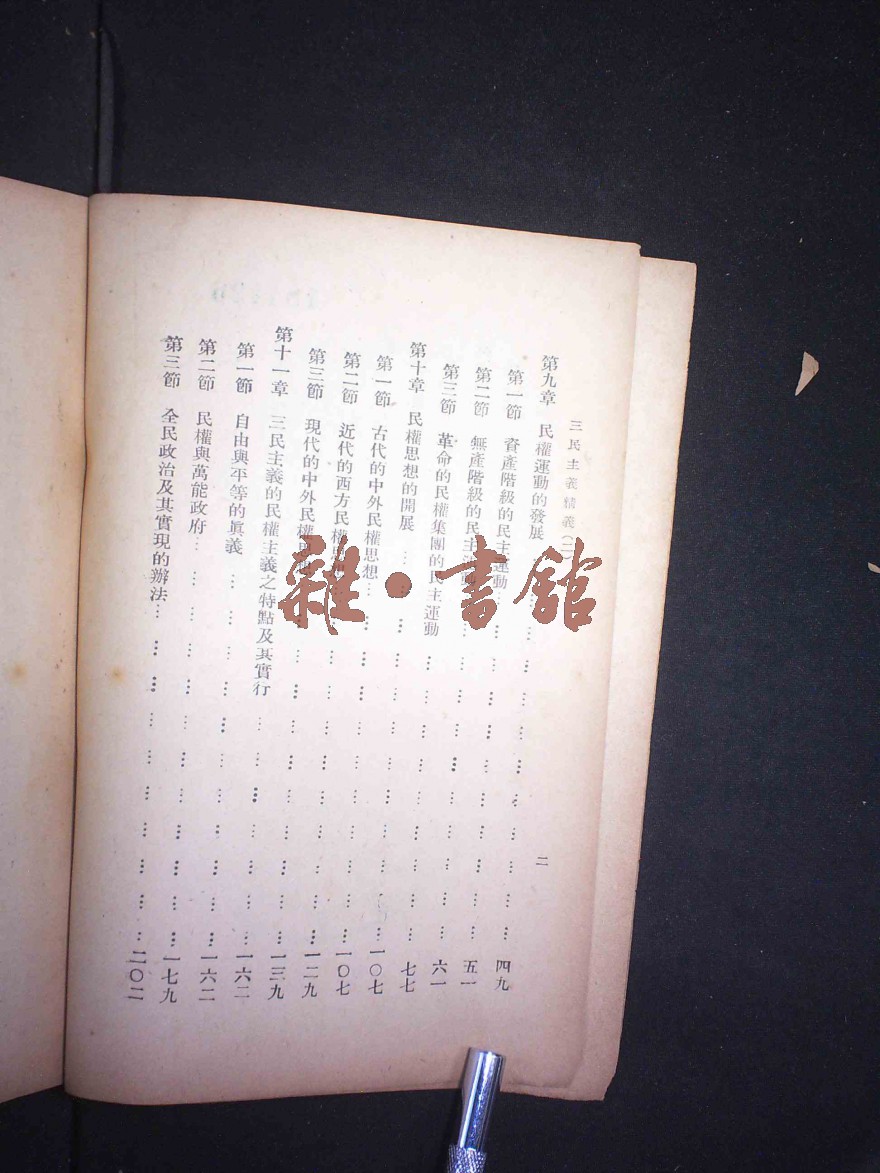 三民主義精義(二)
二
第九章 民權運動的發展………四九
第一節 資產階級的民主運動………五一
第二節 無產階級的民主運動………六一
第三節 革命的民權集團的民主運動………七七
第十章 民權思想的開展………一〇七
第一節 古代的中外民權思想………一〇七
第二節 近代的西方民權思想………一二九
第三節 現代的中外民權思想………一三九
第十一章 三民主義的民權主義之特點及其實行………一六二
第一節 自由與平等的眞義………一六二
第二節 民權與萬能政府………一七九
第三節 全民政治及其實現的辦法………二〇二
雜·書館